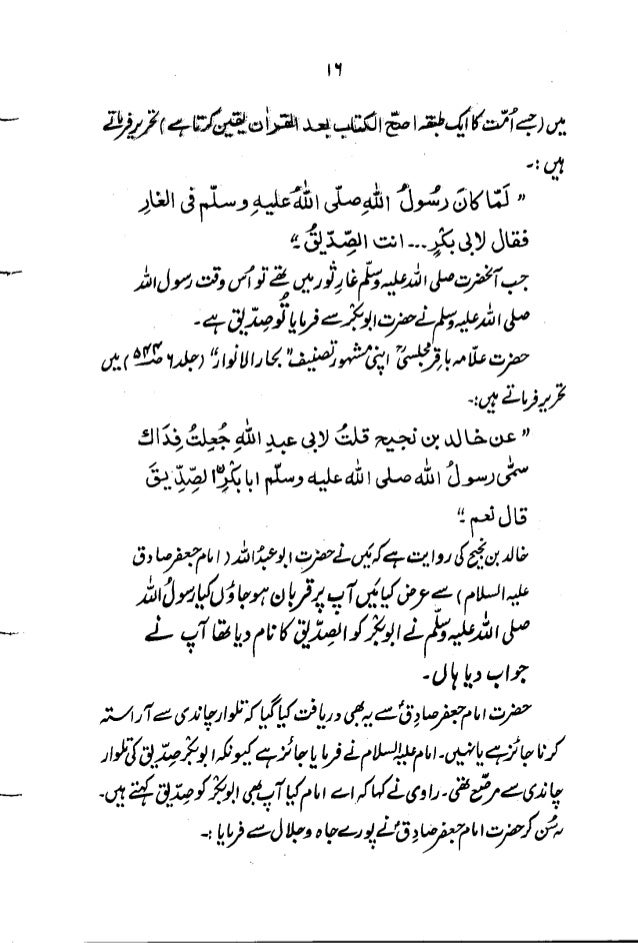 ۱۶
میں (جسے اُمّت کا ایک طبقہ اصحّ الکتاب بعد القراٰن یقین کرتا ہے) تحریر فرماتے
ہیں :۔
" لَمَّا کانَ رسُولُ اللهِ صلّی اللهُ علیہِ وسلّم فی الغارِ
فقال لابی بکرٍ... انت الصِّدّیقُ۔"
جب آنحضرت صلی اللہ علیہ وسلّم غارِ ثور میں تھے تو اُس وقت رسول اللہ
صلی اللہ علیہ وسلم نے حضرت ابوبکرؓ سے فرمایا تُو صدّیق ہے۔
حضرت علّامہ باقر مجلسیؒ اپنی مشہور تصنیف "بحار الانوار" (جلد ۶ صہ ۵۴۴) میں
تحریر فرماتے ہیں:۔
" عن خالد بن نجیح قلتُ لابی عبدِ اللهِ جُعِلتُ فِدَاک
سمّٰی رسولُ الله صلی الله علیه وسلّم ابا بکرٍؓ الصِّدِّیقَ
قال نعم۔"
خالد بن نجیح کی روایت ہے کہ مَیں نے حضرت ابو عبدُ اللہ (امام جعفر صادق
علیہ السلام) سے عرض کیا مَیں آپ پر قربان ہوجاؤں کیا رسولُ اللہ
صلی اللہ علیہ وسلّم نے ابوبکرؓ کو الصدّیق کا نام دیا تھا آپ نے
جواب دیا ہاں۔
حضرت امام جعفر صادقؑ سے یہ بھی دریافت کیا گیا کہ تلوار چاندی سے آراستہ
کرنا جائز ہے یا نہیں۔ امام علیہ السلام نے فرمایا جائز ہے کیونکہ ابوبکرؓ صدّیق کی تلوار
چاندی سے مرصّع تھی۔ راوی نے کہا کہ اے امام کیا آپ بھی ابوبکرؓ کو صدّیق کہتے ہیں۔
یہ سُن کر حضرت امام جعفر صادقؑ نے پورے جاہ و جلال سے فرمایا :۔